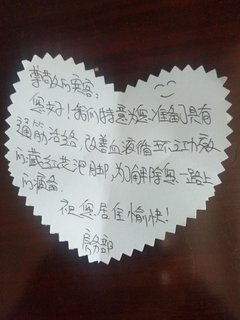 尊敬的宾客:
您好!我们特意为您准备了具有
通筋活络,改善血液循环功效
的藏红花泡脚,为解除您一路上
的疲备.
祝您居住愉快!
房务部